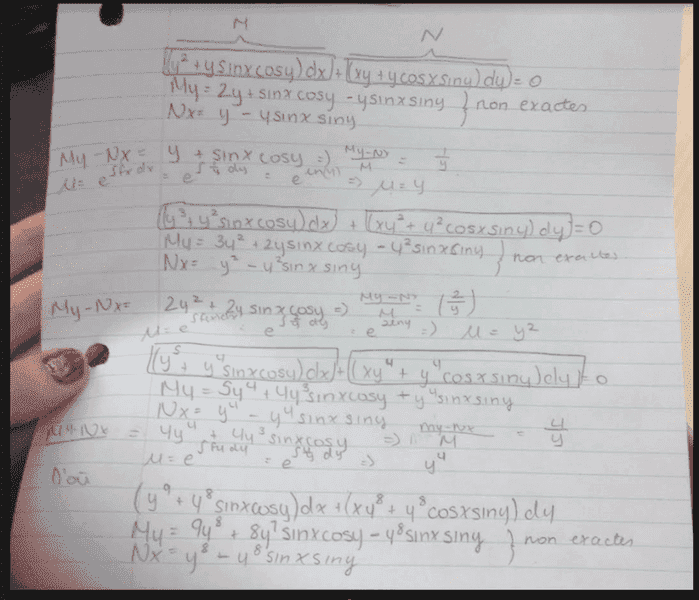 M N
(y² + y sinx cosy) dx + (xy + y cosx siny) dy = 0
My = 2y + sinx cosy - y sinx siny } non exactes
Nx = y - y sinx siny
My - Nx = y + sinx cosy => (My-Nx)/M = 1/y
μ = e^∫fx dx = e^∫1/y dy = e^ln(y) => μ = y
(y³ + y² sinx cosy) dx + (xy² + y² cosx siny) dy = 0
My = 3y² + 2y sinx cosy - y² sinx siny } non exactes
Nx = y² - y² sinx siny
My - Nx = 2y² + 2y sinx cosy => (My-Nx)/M = (2/y)
μ = e = e^∫2/y dy = e^2lny => μ = y²
(y⁵ + y⁴ sinx cosy) dx + (xy⁴ + y⁴ cosx siny) dy = 0
My = 5y⁴ + 4y³ sinx cosy + y⁴ sinx siny
Nx = y⁴ - y⁴ sinx siny
My-Nx = 4y⁴ + 4y³ sinx cosy => (my-Nx)/M = 4/y
μ = e^∫fy dy = e^∫4/y dy => y⁴
D'où
(y⁹ + y⁸ sinx cosy) dx + (xy⁸ + y⁸ cosx siny) dy
My = 9y⁸ + 8y⁷ sinx cosy - y⁸ sinx siny } non exactes
Nx = y⁸ - y⁸ sinx siny